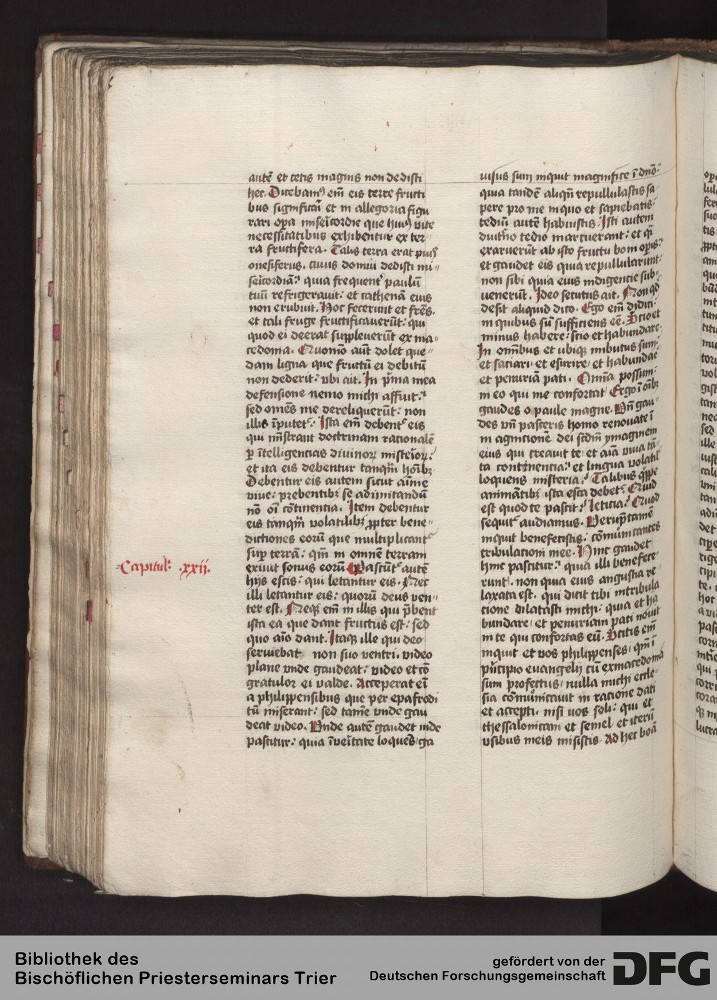 autē et cetis magnis non dedisti
hec. Dicebamꝰ em̄ eis terre fructi
bus significari et in allegoria figu
rari opa misericordie que huiꝰ vite
necessitatibus exhibentur ex ter-
ra fructifera. Talis terra erat piꝰ
onesiferus. cuius domui dedisti mi-
sericordiā: quia frequentˀ paulū
tuū refrigeravit: et cathenā eius
non erubuit. Hoc fecerunt et fr̄es.
et tali fruge fructificaverūt: qui
quod ei deerat suppleverūt ex ma-
cedonia. Quomō aūt dolet que-
dam ligna. que fructū ei debitū
non dederūt: vbi ait. In p̄ma mea
defensione nemo michi affuit:
sed om̄es me dereliquerūt: non
illis īputetˀ. Ista em̄ debentˀ eis
qui mīstrant doctrinam rationalē
p ītelligencias divinorꝫ misterioꝝ:
et ita eis debentur tanqm̄ hoībꝫ
Debentur eis autem sicut aīme
vive: prebentibꝫ se ad imitandū
nō oī cōtinentia. Item debentur
eis tanqm̄ volatilibꝫ ꝓpter bene-
dictiones eorū que multiplicantˀ
suꝑ terrā: qm̄ in omnē terram
exivit sonus eorū Pascūtˀ autē
Capitulꝫ .xxij.
hijs escis: qui letantur eis. Nec
illi letantur eis: quorū deus ven-
ter est. Neqꝫ em̄ in illis qui p̄bent
ista ea que dant fructus est: sed
quo aīo dant. Itaqꝫ ille qui deo
serviebat non suo ventri. video
plane vnde gaudeat: video et cō
gratulor ei valde. Acceperat eī
a philippensibus que per epafrodi
tū miserant: sed tamē vnde gau
deat video. Vnde autē gaudet inde
pascitur: quia īveritate loquēs ga
visus sum inquit magnifice ī dn̄o:
quia tandē aliqn̄ repullulastis sa
pere pro me in quo et sapiebatis:
tediū autē habuistis. Isti autem
diutīo tedio marcuerant: et q̄
exaruerūt ab isto fructu boni opis:
et gaudet eis quia repullularunt:
non sibi quia eius indigencie sub-
venerūt. Ideo secutus ait. Non qꝫ
desit aliquid dico. Ego em̄ didici
in quibus sū sufficiens eē. Scio et
minus habere: scio et habundare:
In om̄ibus et ubiqꝫ inbutus sum:
et satiari: et esurire: et habundare
et penuriā pati. Omīa possum:
in eo qui me confortat Ergo ī oībꝫ
gaudes o paule magne. Vn̄ gau
des vn̄ pasceris homo renovate ī
in agnitione dei scd̄m ymaginem
eius qui creavit te: et aīa viva tā-
ta continentia: et lingua volatilˀ
loquens misteria: Talibus qͥppe
animātibꝫ ista esca debetˀ. Quid
est quod te pascit: leticia: Quod
sequitˀ audiamus. Verūptamē
inquit benefecistis: cōmūicantes
tribulationi mee. Hinc gaudet
hinc pascitur: quia illi benefece-
runt. non quia eius angustia re
laxata est. qui dicit tibi in tribula
cione dilatasti michi: quia et ha
bundare: et penuriam pati novit
in te qui confortas eū. Scitis em̄
inquit et vos philippenses: qm̄ ī
p̄ncipio evangelij cū ex macedonia
sum profectus: nulla michi eccle-
sia cōmūicavit in ratione dati
et accepti. nisi vos soli: qui et
thessalonicam et semel et iterū
vsibus meis misistis. Ad hec boā
Bibliothek des
Bischöflichen Priesterseminars Trier
gefördert von der
Deutschen Forschungsgemeinschaft
DFG